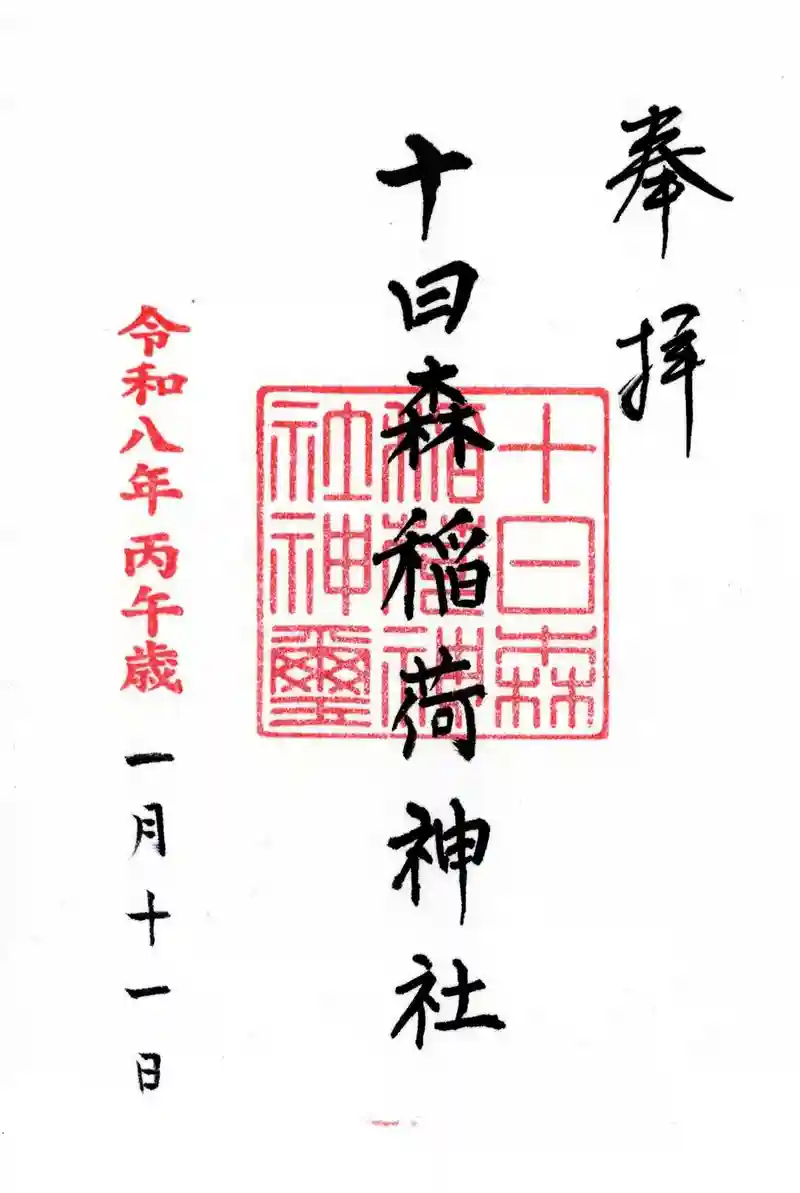 奉拝
十日森稲荷神社
十日森
稲荷神
社神璽
令和八年丙午歳
一月十一日